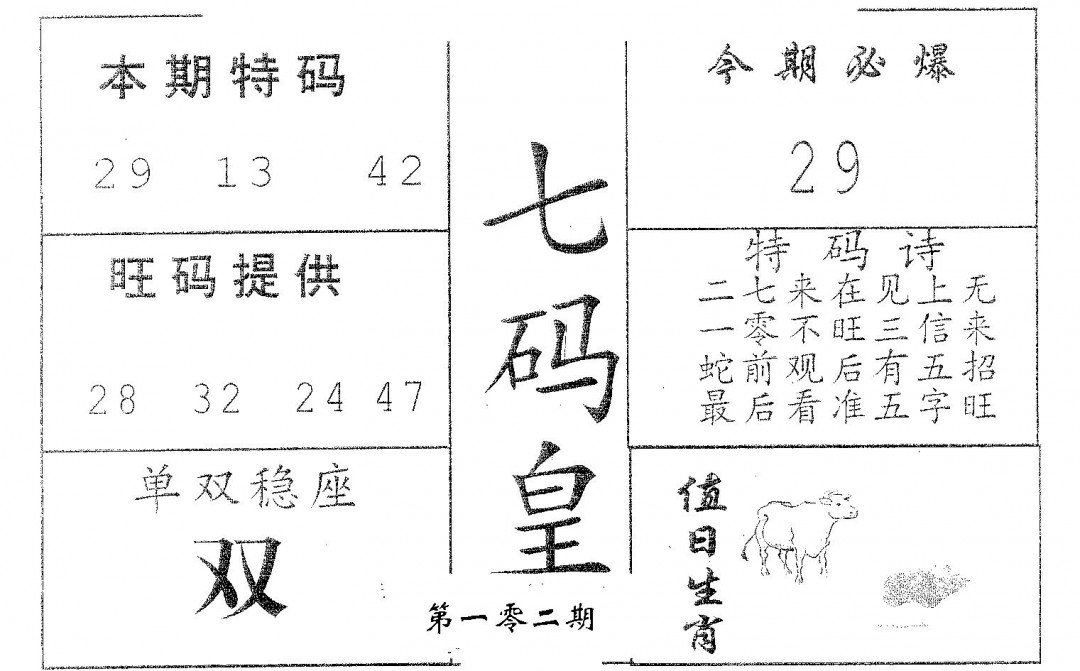 本期特码
29 13 42
旺码提供
28 32 24 47
单双稳座
双
七码皇
第一零二期
今期必爆
29
特码诗
二七来在见上无
一零不旺三信来
蛇前观后有五招
最后看准五字旺
值日生肖